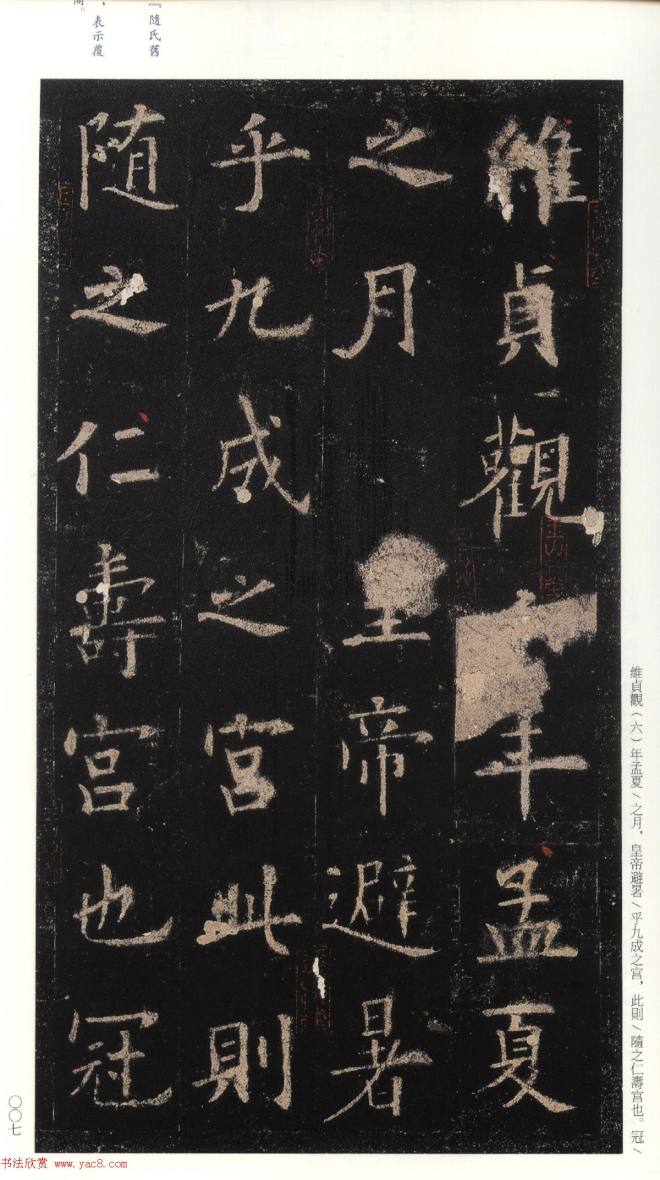 維貞觀年孟夏
之月皇帝避暑
乎九成之宮此則
隨之仁壽宮也冠
維貞觀（六）年孟夏/之月，皇帝避暑/乎九成之宮，此則/隨之仁壽宮也。冠/
『隨氏舊
，表示覆
〇〇七
书法欣赏 www.yac8.com